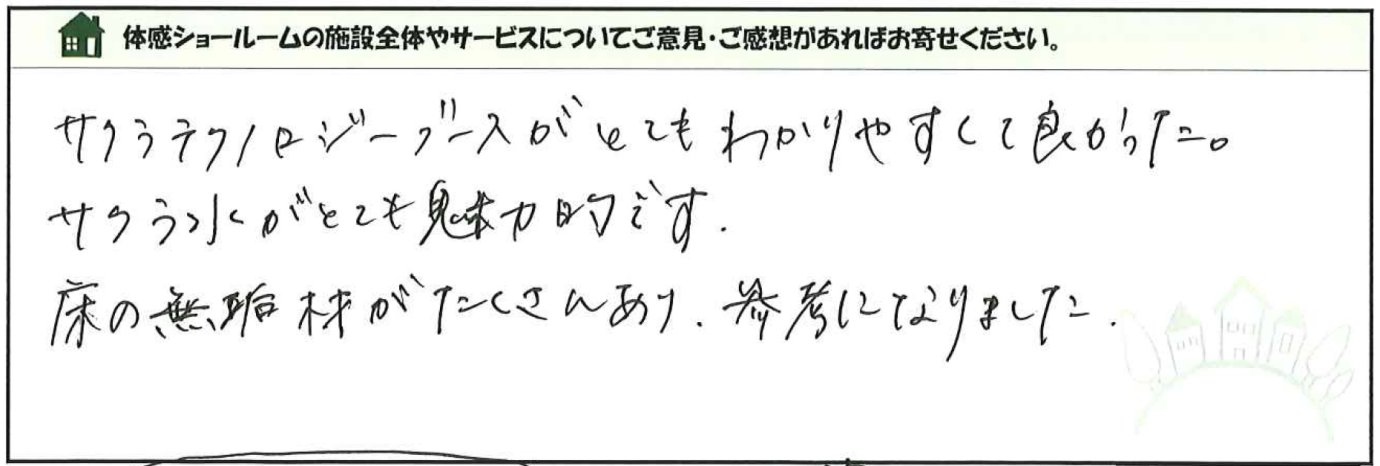 体感ショールームの施設全体やサービスについてご意見・ご感想があればお寄せください。
サクラテクノロジーブースがとてもわかりやすくて良かった。
サクラ水がとても魅力的です.
床の無垢材がたくさんあり、参考になりました.